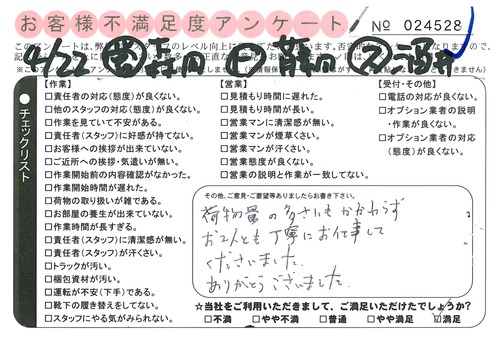 お客様不満足度アンケート
№ 024528
4/22
【作業】
□責任者の対応(態度)が良くない。
□他のスタッフの対応(態度)が良くない。
□作業を見ていて不安がある。
□責任者(スタッフ)に好感が持てない。
□お客様への挨拶が出来ていない。
□ご近所への挨拶・気遣いが無い。
□作業開始前の内容確認がなかった。
□作業開始時間が遅れた。
□荷物の取り扱いが雑である。
□お部屋の養生が出来ていない。
□作業時間が長すぎる。
□責任者(スタッフ)に清潔感が無い。
□責任者(スタッフ)が汗くさい。
□トラックが汚い。
□梱包資材が汚い。
□運転が不安(下手)である。
□靴下の履き替えをしてない。
□スタッフにやる気がみられない。
【営業】
□見積もり時間に遅れた。
□見積もり時間が長い。
□営業マンに清潔感が無い。
□営業マンが煙草くさい。
□営業マンが汗くさい。
□営業態度が良くない。
□営業の説明と作業が一致してない。
【受付・その他】
□電話の対応が良くない。
□オプション業者の説明
・作業が良くない。
□オプション業者の対応
(態度)が良くない。
チェックリスト
その他、ご意見・ご要望等ありましたらお書き下さい。
荷物量の多さにもかかわらず
お2人とも丁寧にお仕事して
くださいました。
ありがとうございました。
☆当社をご利用いただきまして、ご満足いただけたでしょうか?
□不満 □やや不満 □普通 □やや満足 ☑満足